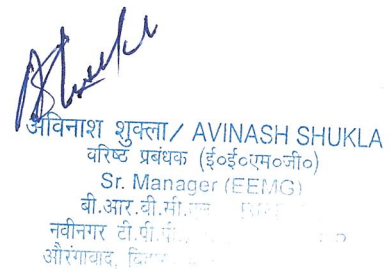 अविनाश शुक्ला / AVINASH SHUKLA
वरिष्ठ प्रबंधक (ई०ई०एम०जी०)
Sr. Manager (EEMG)
बी.आर.बी.सी.एल
नवीनगर टी.पी.पी.
औरंगाबाद, बिहार